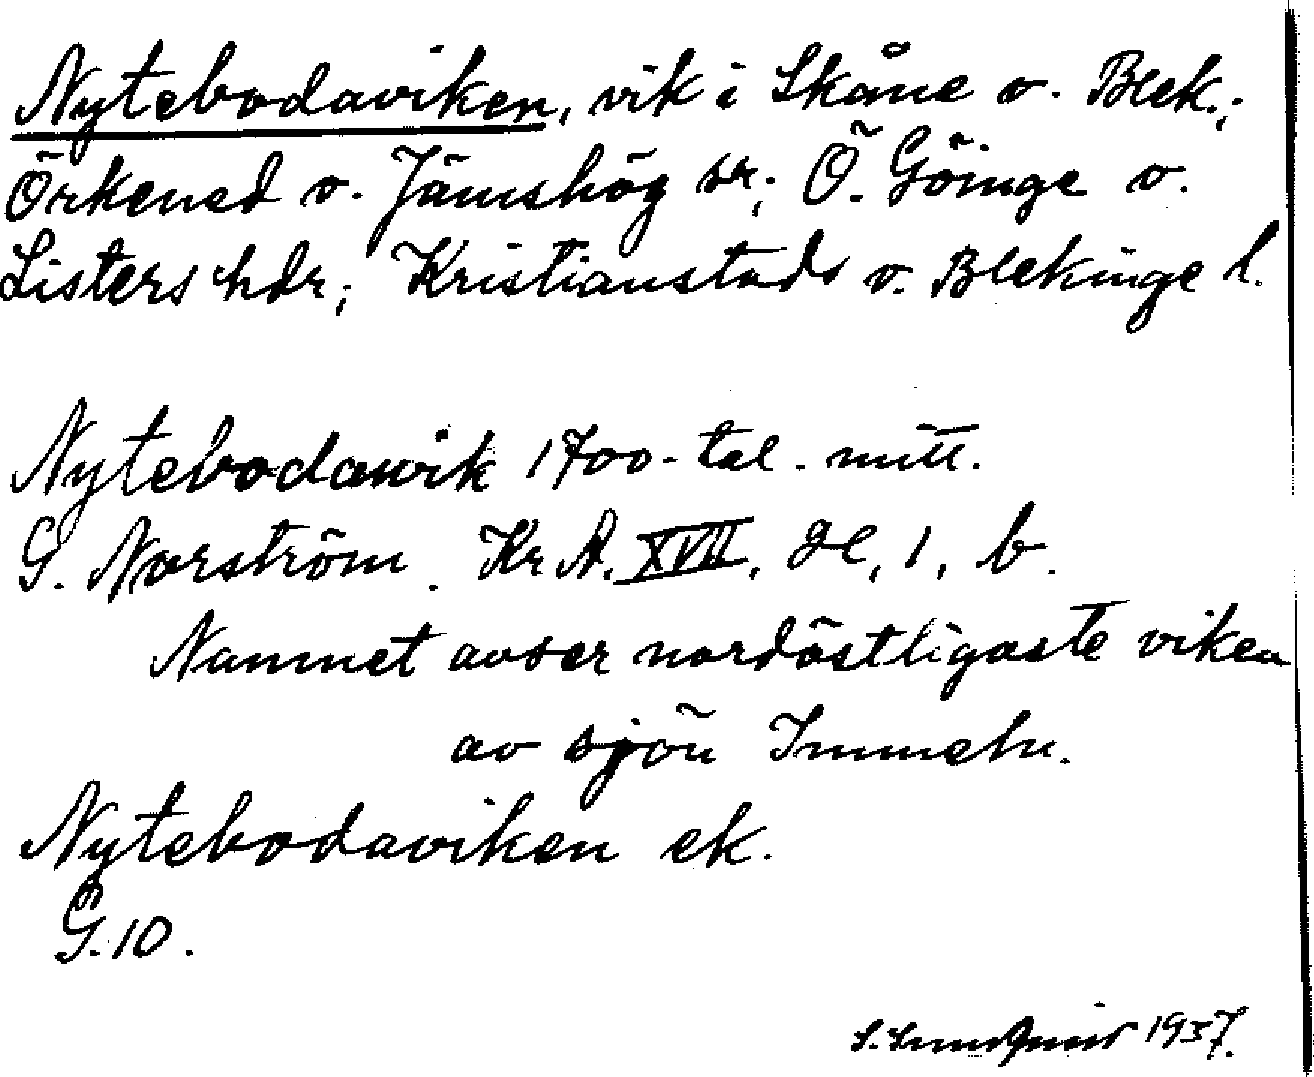 Nytebodaviken, vik i Skåne o. Blek.;
Örkened o. Jämshög sr; Ö. Göinge o.
Listers hdr; Kristianstads o. Blekinge l.
Nytebodawik 1700-tal. mitt.
G. Norström. Kr A. XVII, 1, b.
Namnet avser nordöstligaste viken
av sjön Immeln.
Nytebodaviken ek.
G. 10.
1937.